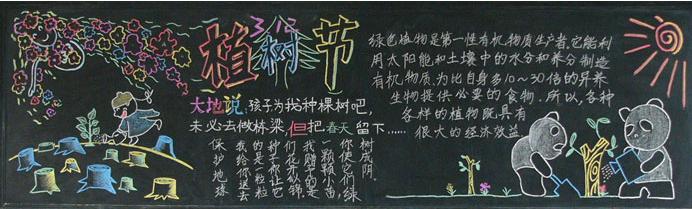 植树节
大地说:孩子为我种棵树吧,
未必去做栋梁,但把春天留下……
保护地球
我给你送去
的是一粒粒
种子你让它
们花开似锦
我赠予的是
一颗颗小苗
你使它们绿
树成阴
绿色植物是第一性有机物质生产者,它能利
用太阳能和土壤中的水分和养分制造
有机物质,为比自身多10~30倍的异养
生物提供必要的食物。所以,各种
各样的植物既具有
很大的经济效益